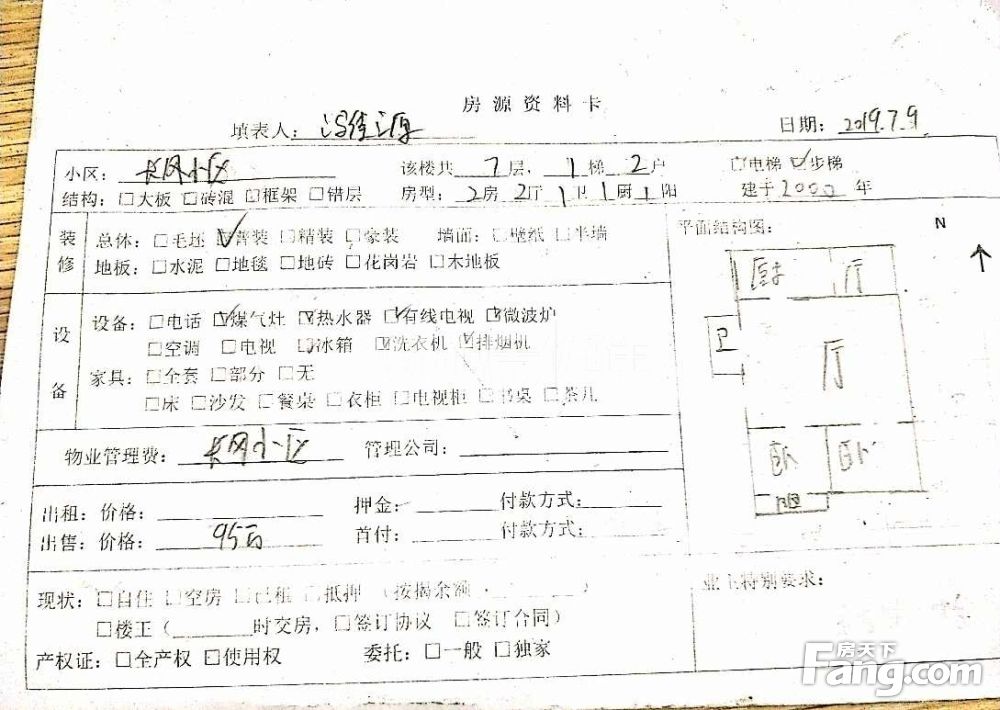 房源资料卡
填表人： 日期：2019.7.9
小区：长风小区 该楼共 7 层， 1 梯 2 户 □电梯 ☑步梯
结构：□大板 □砖混 □框架 □错层 房型：2房2厅1卫1厨1阳 建于2000年
装修
总体：□毛坯 ☑普装 □精装 □豪装 墙面：□壁纸 □半墙
地板：□水泥 □地毯 □地砖 □花岗岩 □木地板
平面结构图：
N
厨 厅
卫 厅
卧 卧
阳
设备
设备：□电话 ☑煤气灶 ☑热水器 ☑有线电视 ☑微波炉
□空调 □电视 ☑冰箱 ☑洗衣机 ☑排烟机
家具：□全套 □部分 □无
□床 □沙发 □餐桌 □衣柜 □电视柜 □书桌 □茶几
物业管理费：长风小区 管理公司：
出租：价格： 押金： 付款方式：
出售：价格：95万 首付： 付款方式：
现状：□自住 □空房 □已租 □抵押 （按揭余额 ）
□楼王（ 时交房，□签订协议 □签订合同）
产权证：□全产权 □使用权 委托：□一般 □独家
业主特别要求：
房天下
Fang.com